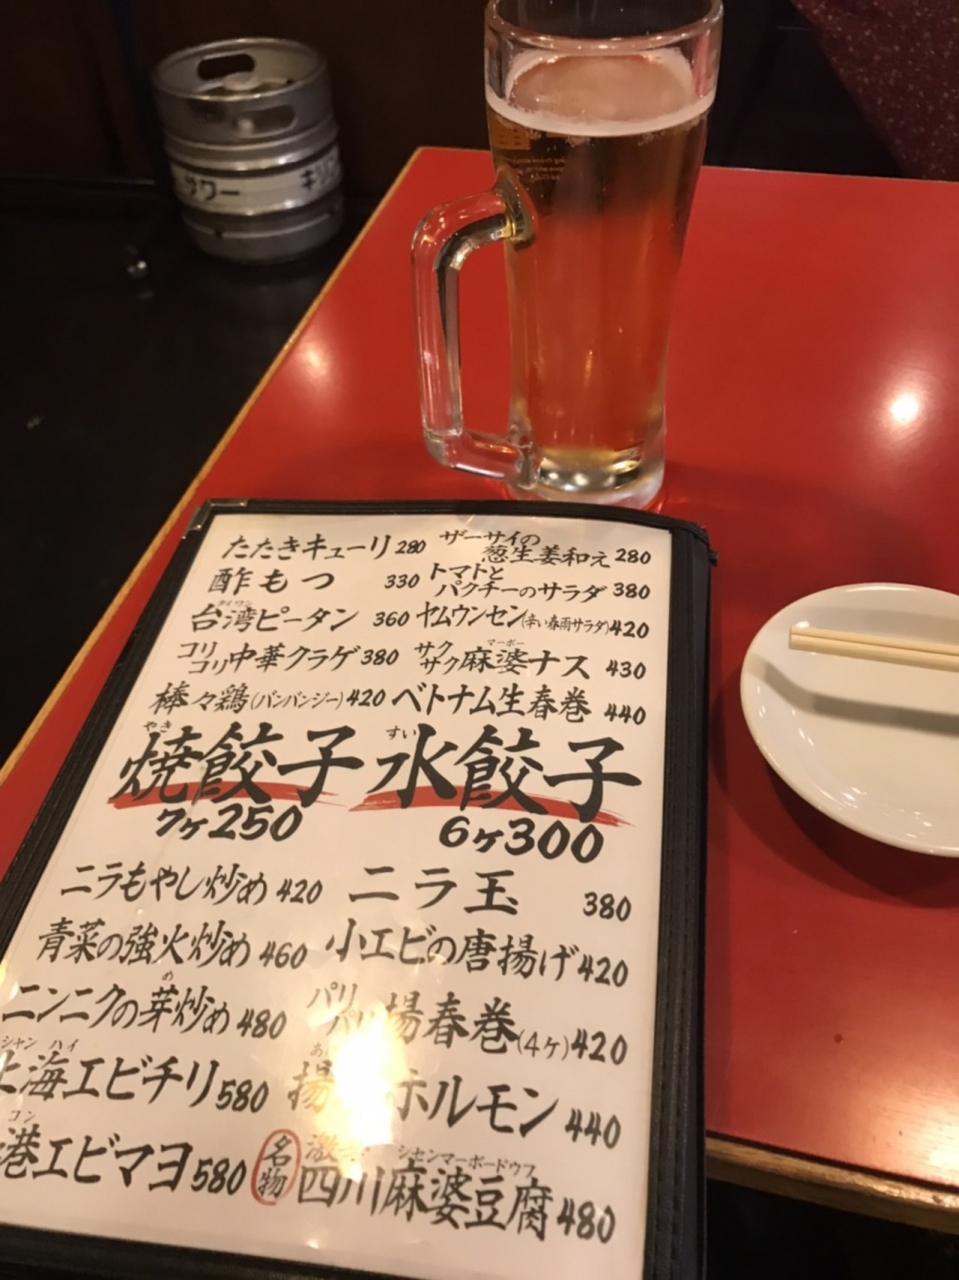 サワー キリン
たたきキューリ 280
ザーサイの
葱生姜和え 280
酢もつ 330
トマトと
パクチーのサラダ 380
タイワン
台湾ピータン 360
ヤムウンセン(辛い春雨サラダ) 420
コリ
コリ中華クラゲ 380
マーボー
サク
サク麻婆ナス 430
棒々鶏(バンバンジー) 420
ベトナム生春巻 440
やき
焼餃子
7ヶ250
すい
水餃子
6ヶ300
ニラもやし炒め 420
ニラ玉 380
青菜の強火炒め 460
小エビの唐揚げ 420
め
ニンニクの芽炒め 480
パリ
パリ揚春巻(4ヶ) 420
シャンハイ
上海エビチリ 580
揚 ホルモン 440
コン
港エビマヨ 580
名物
激
シセンマーボードウフ
四川麻婆豆腐 480